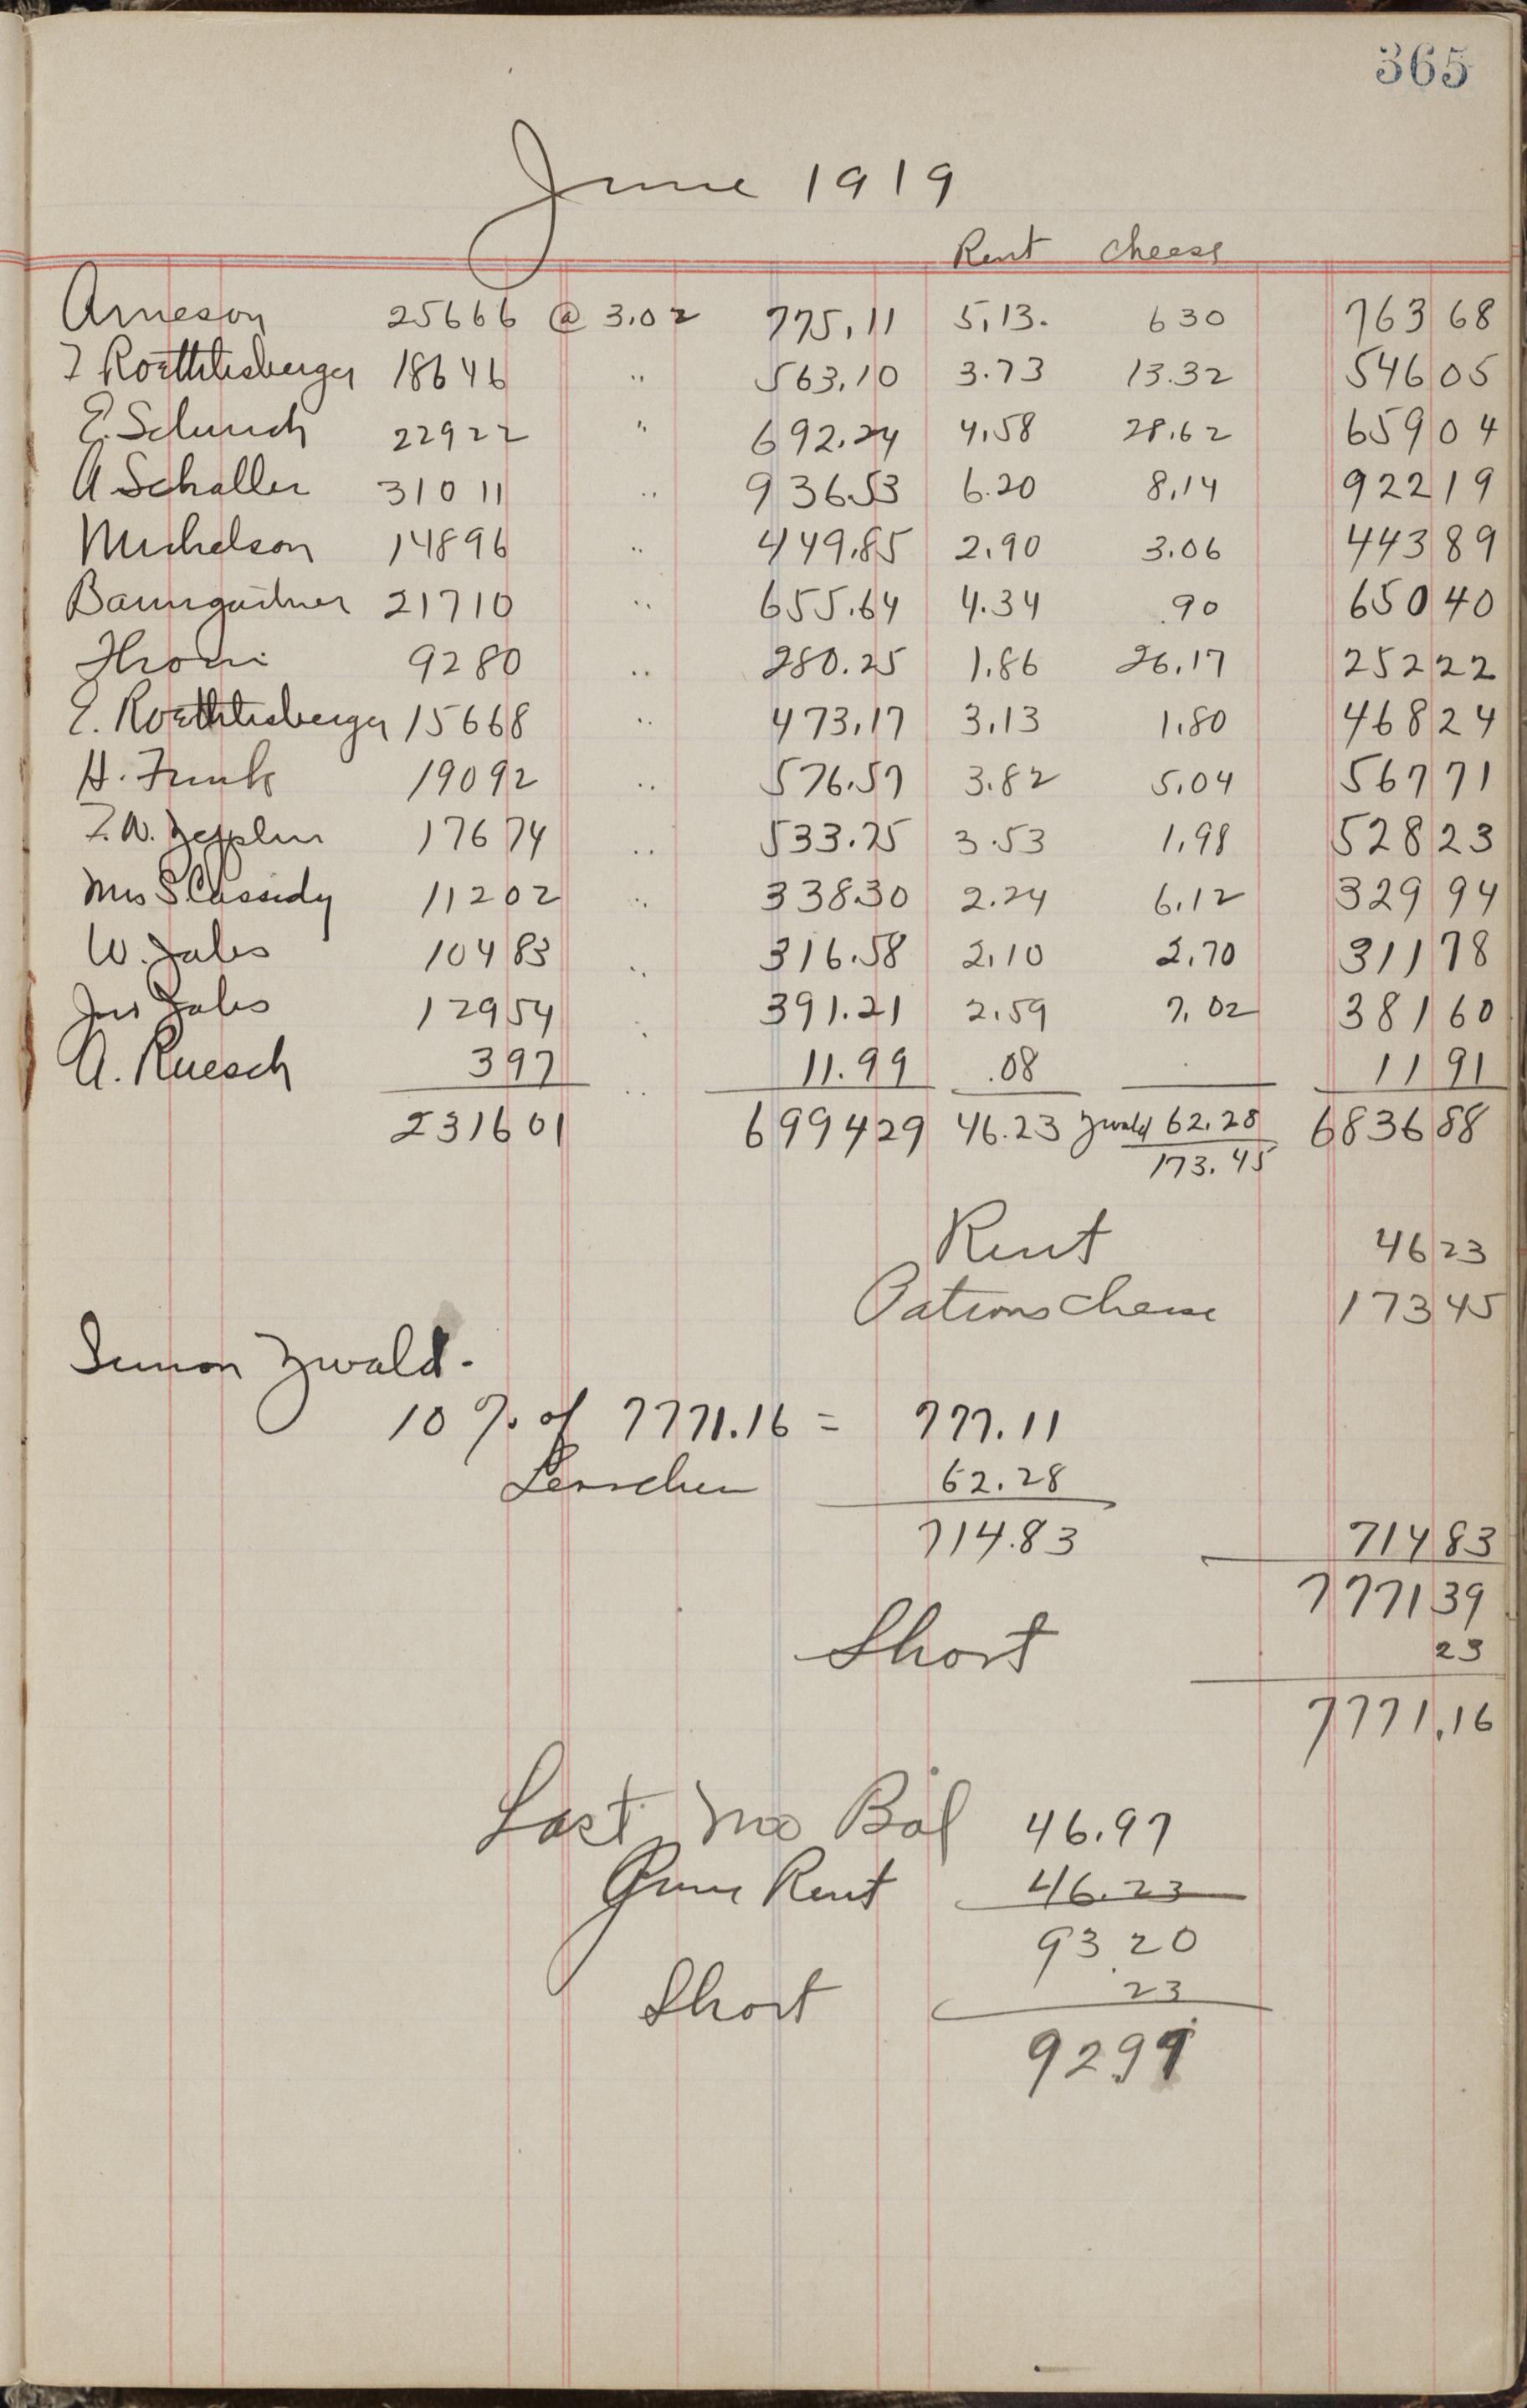 365
June 1919
Rent Cheese
Arneson 25666 @ 3.02 775.11 5.13. 630 763 68
F Roethlisberger 18646 " 563.10 3.73 13.32 546 05
E. Schurch 22922 " 692.24 4.58 28.62 659 04
A Schaller 31011 " 936.53 6.20 8.14 922 19
Michelson 14896 " 449.85 2.90 3.06 443 89
Baumgartner 21710 " 655.64 4.34 .90 650 40
9280 " 280.25 1.86 26.17 252 22
E. Roethlisberger 15668 " 473.17 3.13 1.80 468 24
H. Funk 19092 " 576.57 3.82 5.04 567 71
F.W. Zepplin 17674 " 533.75 3.53 1.98 528 23
Mrs S Cassidy 11202 " 338.30 2.24 6.12 329 94
W. 10483 " 316.58 2.10 2.70 311 78
12954 " 391.21 2.59 7.02 381 60
A. Ruesch 397 " 11.99 .08 11 91
231601 6994 29 46.23 Zwald 62.28 6836 88
173.45
Rent 46 23
Patrons Cheese 173 45
Simon Zwald.
10 % of 7771.16 = 777.11
62.28
714.83 714 83
7771 39
Short 23
7771.16
Last Mo Bal 46.97
June Rent 46.23
93.20
Short 23
92.97